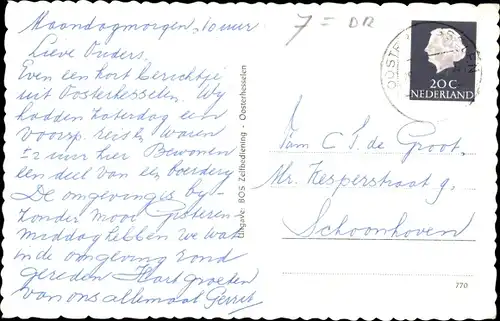 Maandagmorgen, 10 uur
Lieve Ouders.
Even een kort berichtje
uit Oosterhesselen. Wy
hadden Zaterdag een
voorsp. reis & waren
uur hier Bewonen
een deel van een boerdery
De omgeving is by-
zonder mooi Gisteren-
middag hebben we wat
in de omgeving rond
gereden Hart. groeten
van ons allemaal Gerrit
7 = DR
OOSTERHESSELEN
20 C
NEDERLAND
Uitgave: BOS Zelfbediening - Oosterhesselen
Fam C S. de Groot.
Mr. Kesperstraat 9.
Schoonhoven
770